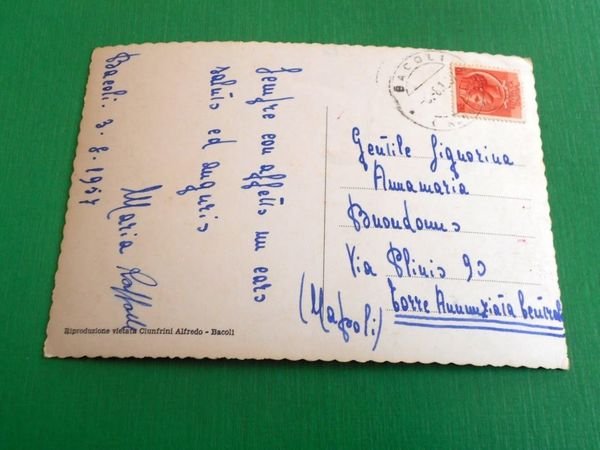 Bacoli. 3.8.1957
Sempre con affetto un caro
saluto ed augurio
Maria
BACOLI
Gentile Signorina
Annamaria
Buondonno
Via Plinio 90
Torre Annunziata Centrale
(Napoli)
Riproduzione vietata Ciunfrini Alfredo - Bacoli